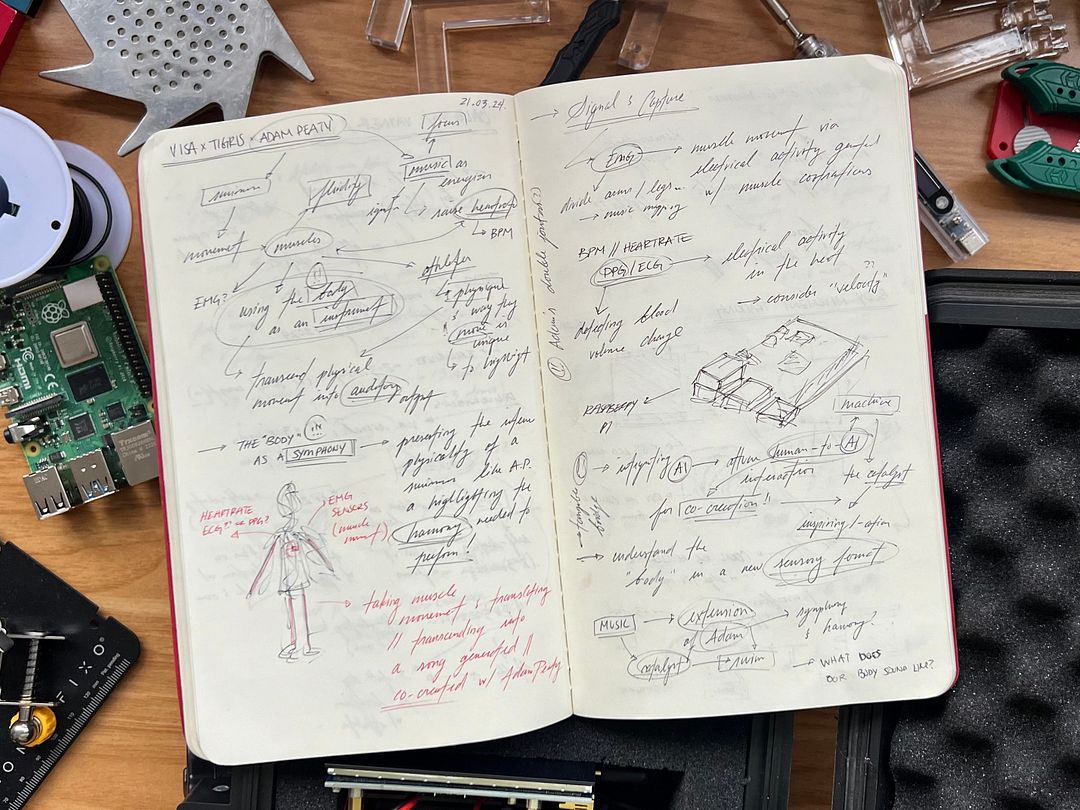 21.03.24.
VISA × TIGRIS × ADAM PEATY
focus
swimmer
fluidity
music as
energizer
raise heartrate
↳ BPM
movement → muscles
EMG?
using the body
as an instrument
athletes
↳ physique
& way they
move is
unique
↳ to highlight
↳ transcend physical
movement into auditory output
→ THE "BODY"
AS A SYMPHONY
→ presenting the intense
physicality of a
swimmer like A.P.
& highlighting the
harmony needed to
perform!
HEARTRATE
ECG? or PPG?
EMG
SENSORS
(muscle
movmt)
→ taking muscle
movement & translating
// transcending into
a song generated //
co-created w/ Adam Peaty
(!) Adam's double joints?)
→ Signals Capture
EMG → muscle movemt via
electrical activity
w/ muscle contractions
divide arms / legs...
→ music mapping
BPM // HEARTRATE
PPG / ECG → electrical activity
in the heart
→ consider "velocity" ??
detecting blood
volume change
RASPBERRY
PI
machine
→ integrating AI → human-to-AI
interaction
the catalyst
for co-creation!!
inspiring
tangible
bridge
→ understand the
"body" in a new sensory format
MUSIC → extension
of Adam
→ symphony
& harmony?
catalyst → swim
→ WHAT DOES
OUR BODY SOUND LIKE?
HDMI
FCC
Trxcom
FIXO